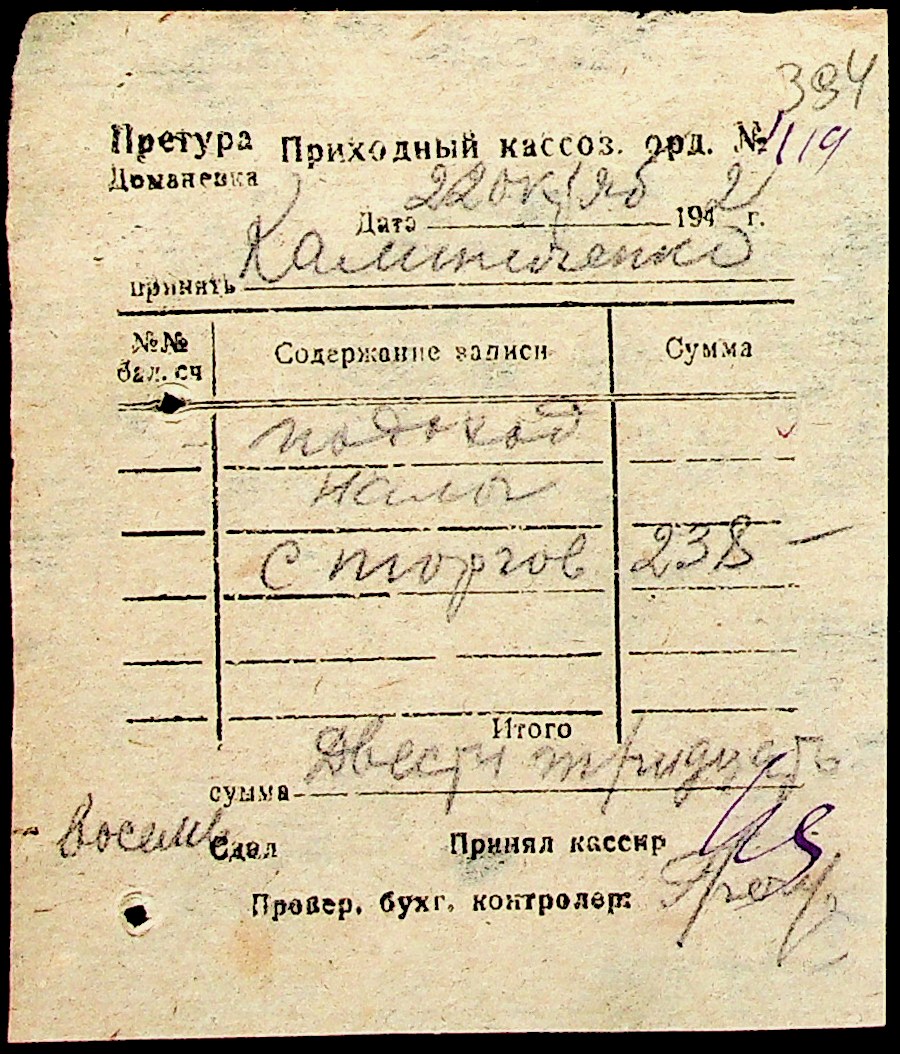 394
Претура Приходный кассов. орд. № 119
Доманевка
Дата 22 октяб 1942 г.
принять Калиниченко
№№ бал. сч Содержание записи Сумма
подоход
налог
с торгов 238 –
Итого
сумма Двести тридцать
восемь Сдал Принял кассир
Провер. бухг. контролер: